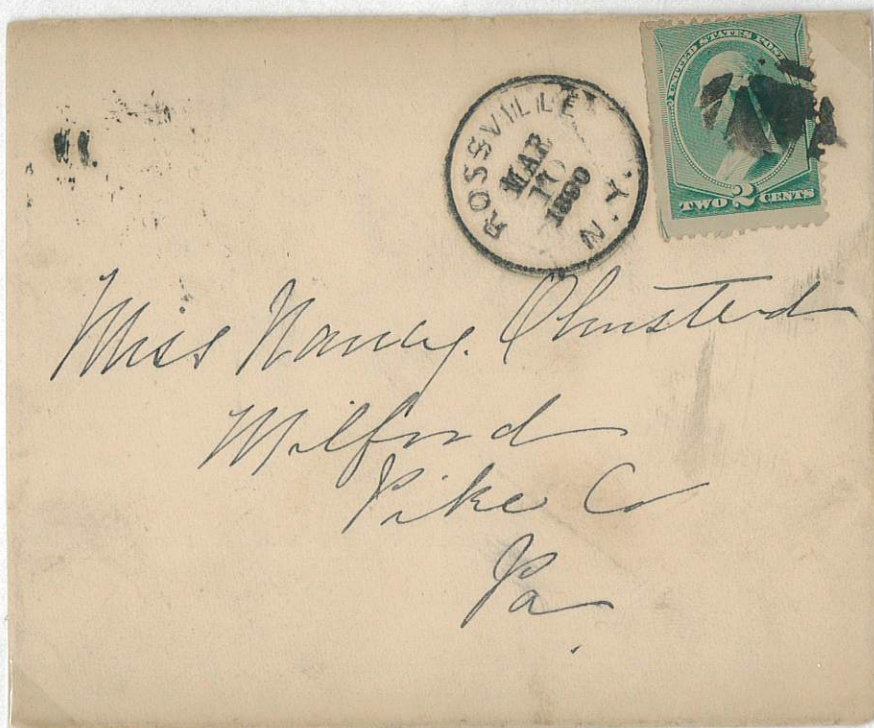 ROSSVILLE N.Y.
MAR
10
1890
UNITED STATES POST
TWO 2 CENTS
Miss Nancy. Olmsted
Milford
Pike Co
Pa